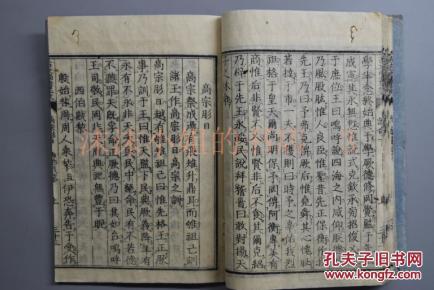 學半念終始典于學厥德修罔覺監于先王
成憲其永無愆惟說式克欽承旁招俊乂列
于庶位王曰嗚呼說四海之內咸仰朕德時
乃風股肱惟人良臣惟聖昔先正保衡作我
先王乃曰予弗克俾厥后惟堯舜其心愧恥
若撻于市一夫不獲則曰時予之辜佑我烈
祖格于皇天爾尚明保予罔俾阿衡專美有
商惟后非賢不乂惟賢非后不食其爾克紹
乃辟于先王永綏民說拜稽首曰敢對揚天
子之休命
高宗肜日
高宗祭成湯有飛雉升鼎耳而雊祖己訓
諸王作高宗肜日高宗之訓
高宗肜日越有雊雉祖己曰惟先格王正厥
事乃訓于王曰惟天監下民典厥義降年有
永有不永非天夭民民中絕命民有不若德
不聽罪天既孚命正厥德乃曰其如台嗚呼
王司敬民罔非天胤典祀無豐于昵
西伯戡黎
殷始咎周周人乘黎祖伊恐奔告于受作
孔夫子旧书网
KONGFZ.COM